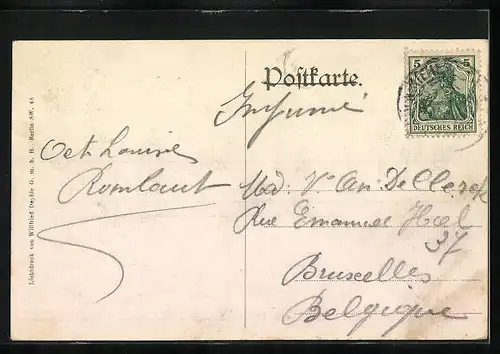 Postkarte.
5 5
DEUTSCHES REICH
Imprimé
Oct. Louise
Romlaut
Mad. Vᵉ An. De Clerck
Rue Emanuel Hiel
37
Bruxelles
Belgique
Lichtdruck von Wilfried Deyhle G. m. b. H. Berlin SW. 48